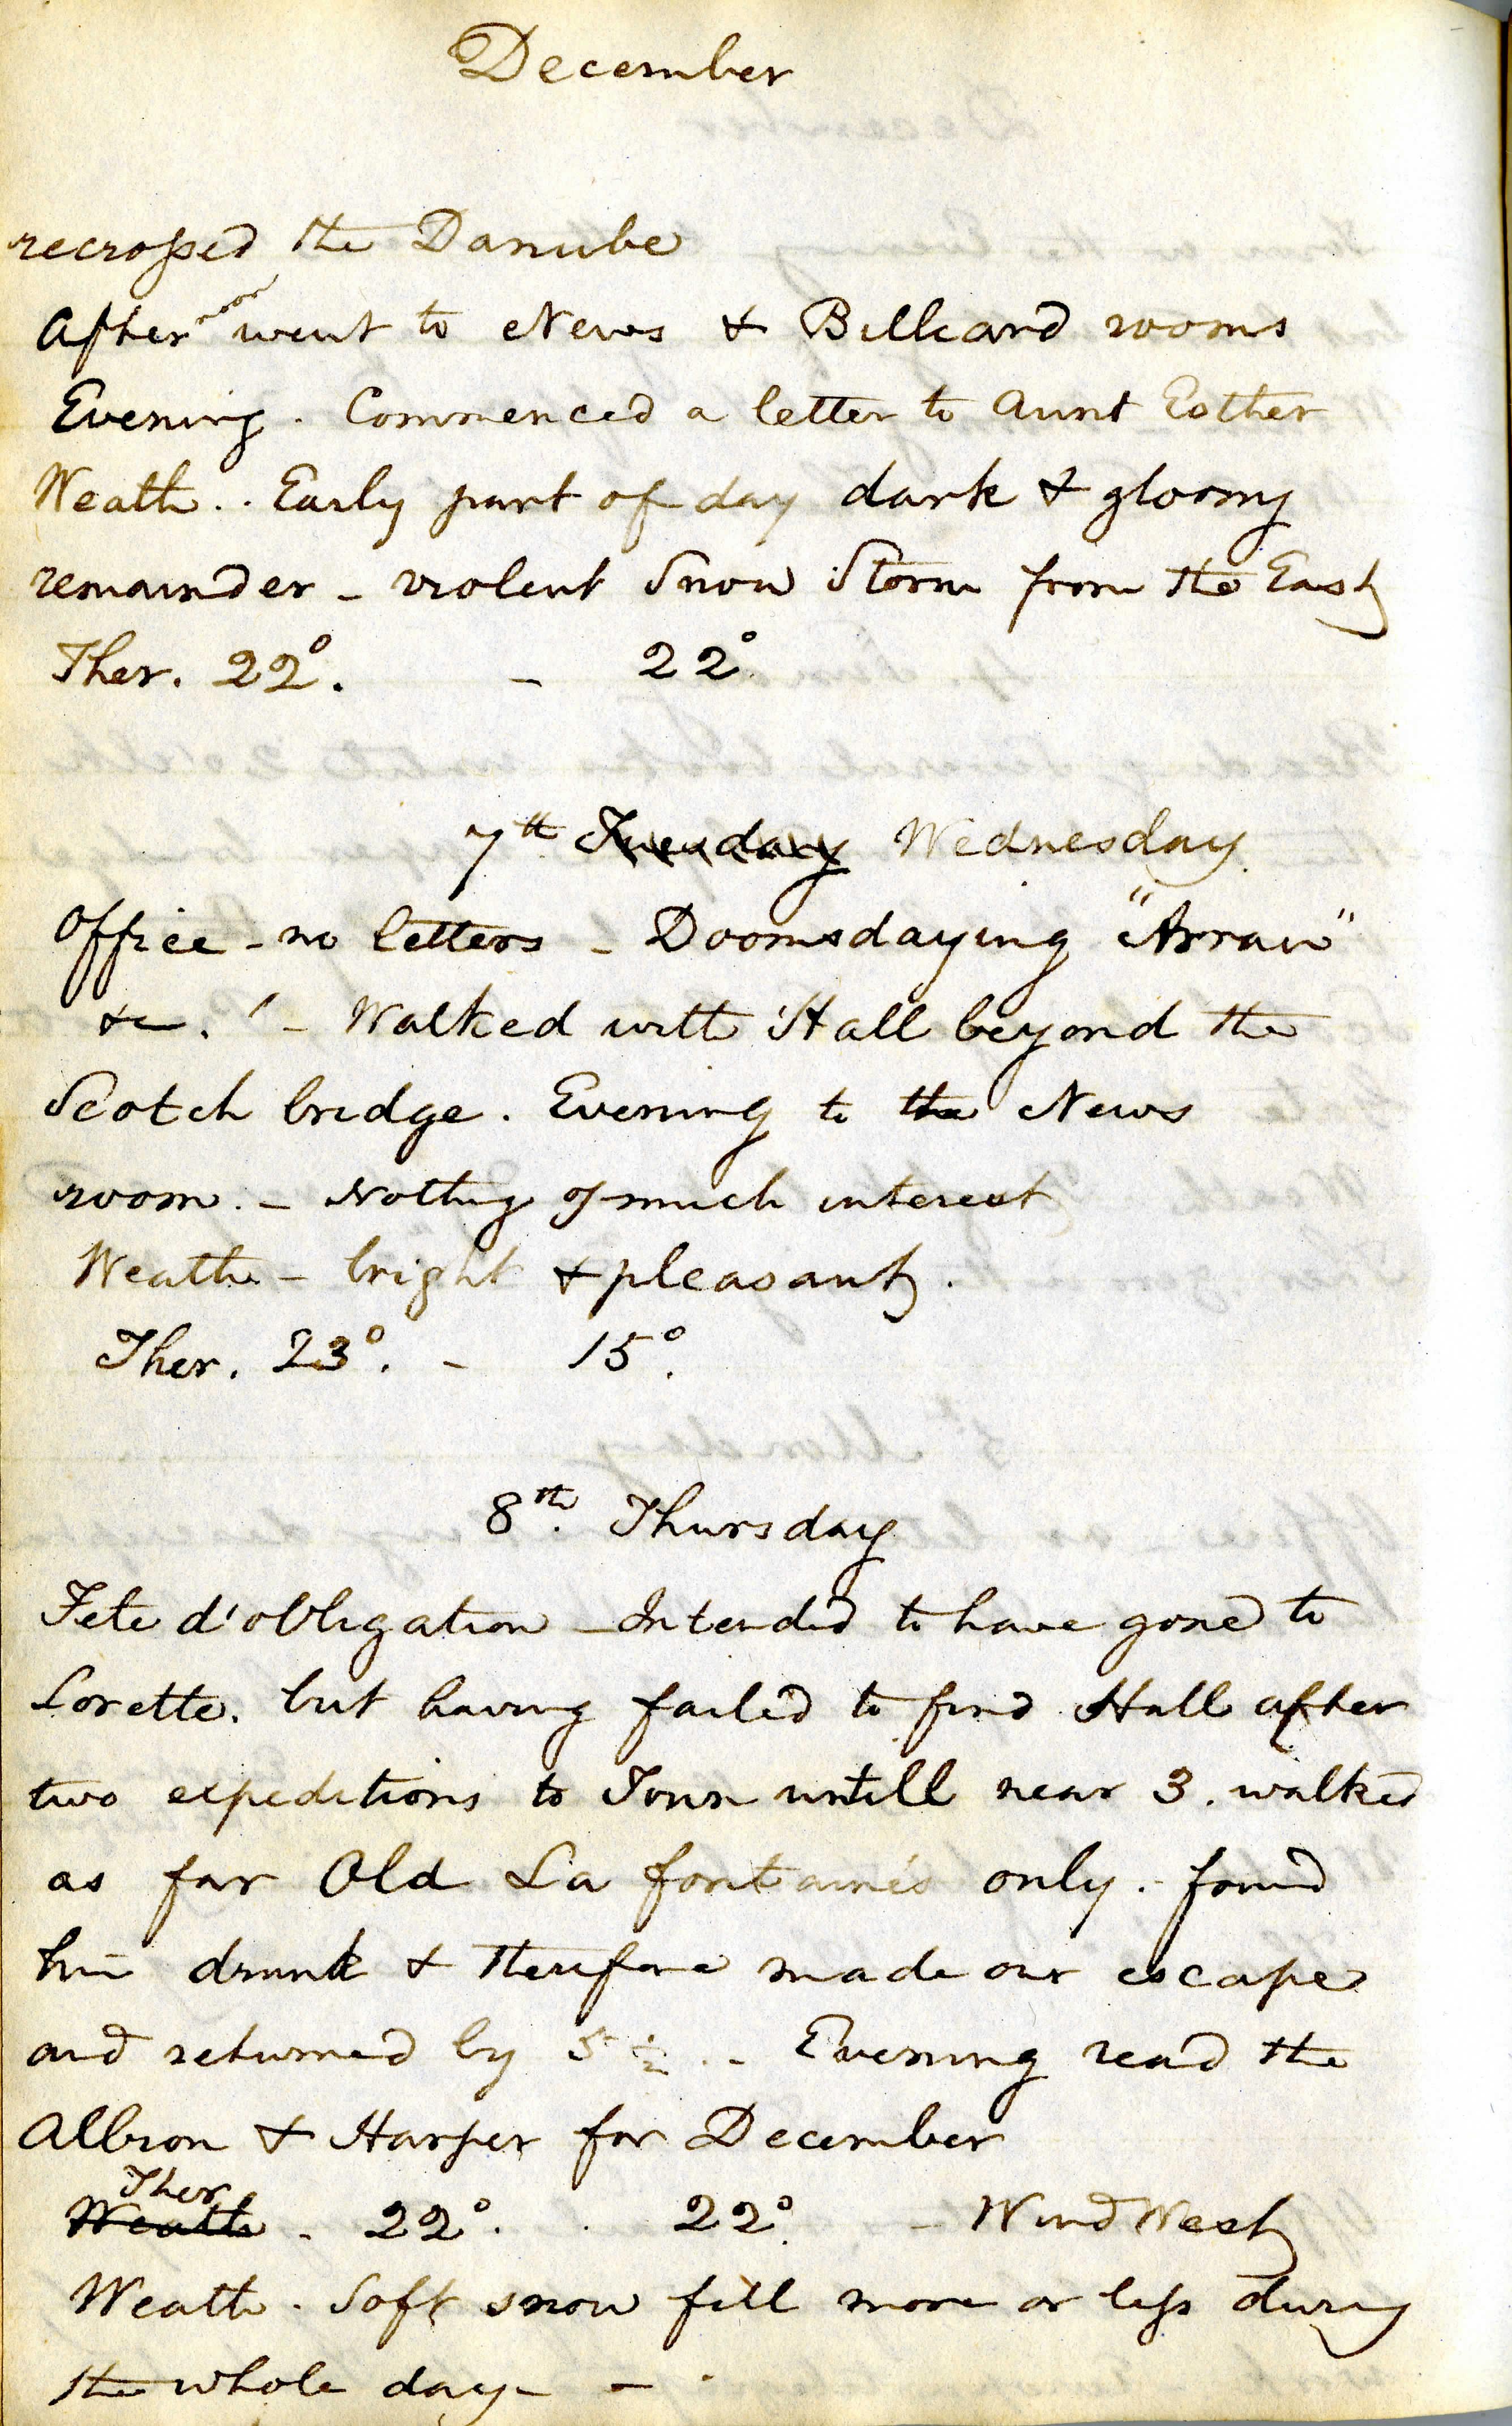 December
recrossed the Danube
Afternoon went to News & Billeard rooms
Evening. Commenced a letter to Aunt Esther
Weath.. Early part of day dark & gloomy
remainder - violent Snow Storm from the East
Ther. 22°. - 22°.
7th Tuesday Wednesday.
Office - no letters - Doomsdaying "Arran"
&c. - Walked with Hall beyond the
Scotch bridge. Evening to the News
room. - Nothing of much interest
Weathe - bright & pleasant.
Ther. 23°. - 15°.
8th. Thursday
Fete d'obligation - Intended to have gone to
Lorette. but having failed to find Hall after
two expeditions to Town untill near 3. walked
as far Old La fontaine's only. - found
him drunk & therefore made our escape
and returned by 5 1/2. - Evening read the
Albion & Harper for December
Ther
Weath - 22°. . 22°. - Wind West
Weath. Soft snow fell more or less during
the whole day - - .